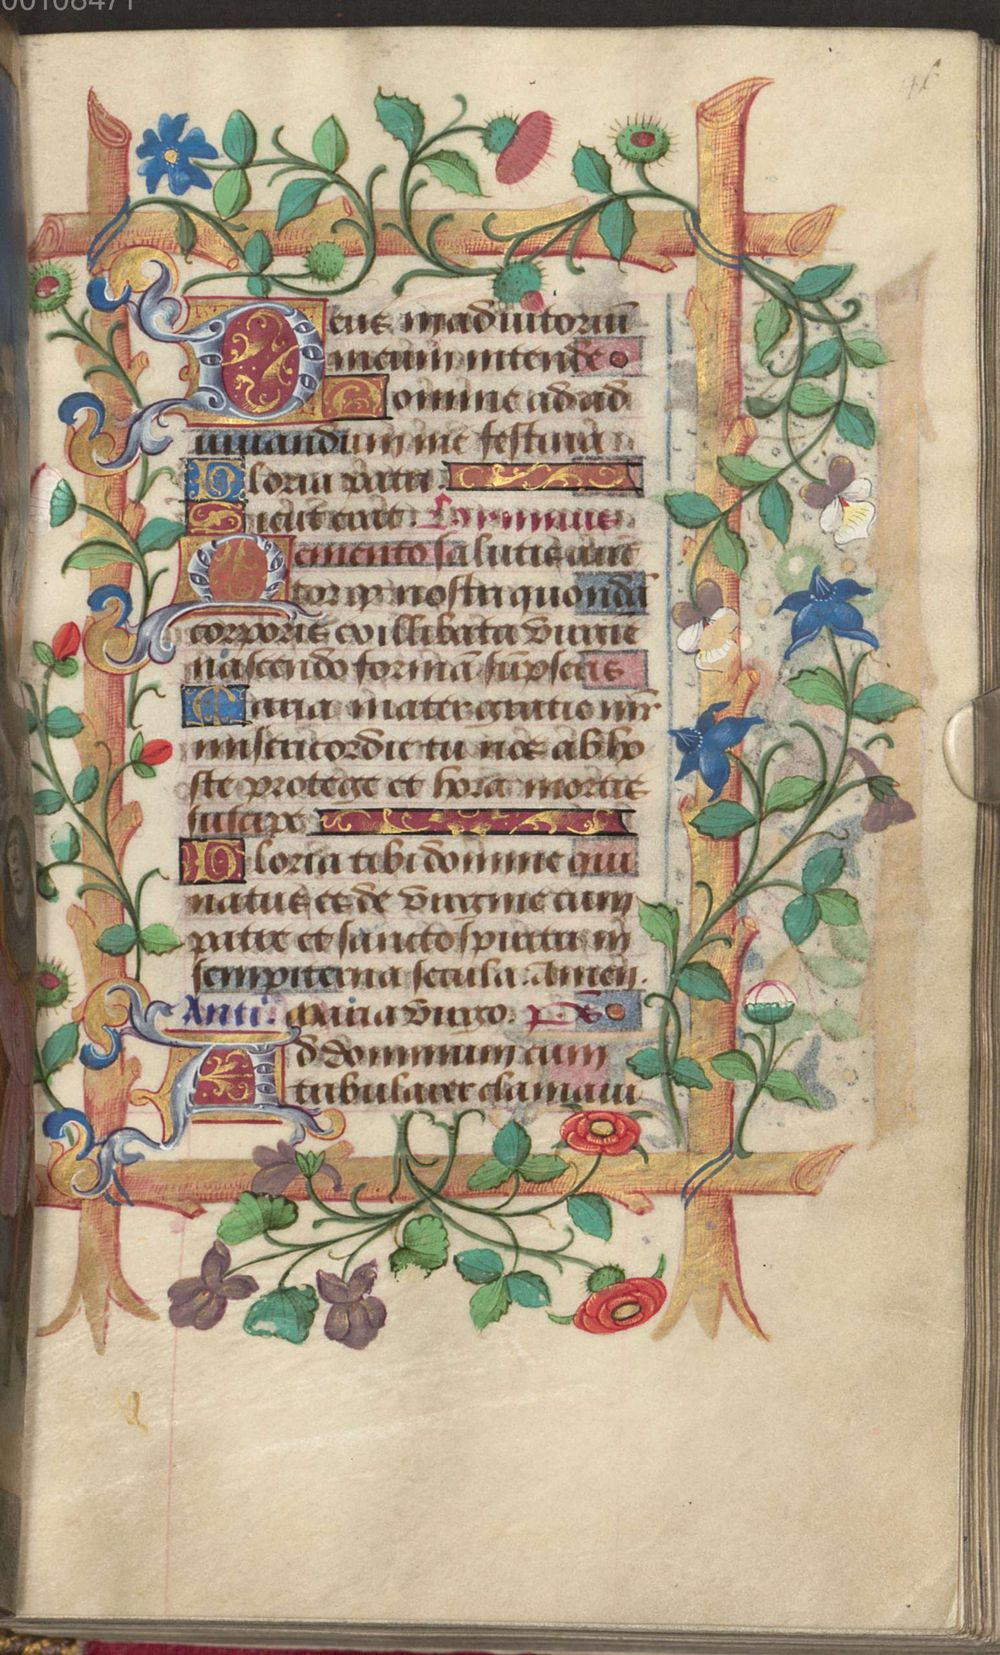 00108471
46
Deus in adiutoriũ
meum intende
Domine ad ad
iuuandum me festina
Gloria patri
Sicut erat. Hymnus
Memento salutis auc
tor qꝫ nostri quondã
corporis ex illibata virgie
nascendo formã sũpseris
Maria mater gratie mr̃
misericordie tu nos ab ho
ste protege et hora mortis
suscipe
Gloria tibi domine qui
natus es de virgine cum
patre et sancto spiritu in
sempiterna secula. Amen.
Anti. Maria virgo. ps̃
Ad dominum cum
tribularer clamaui